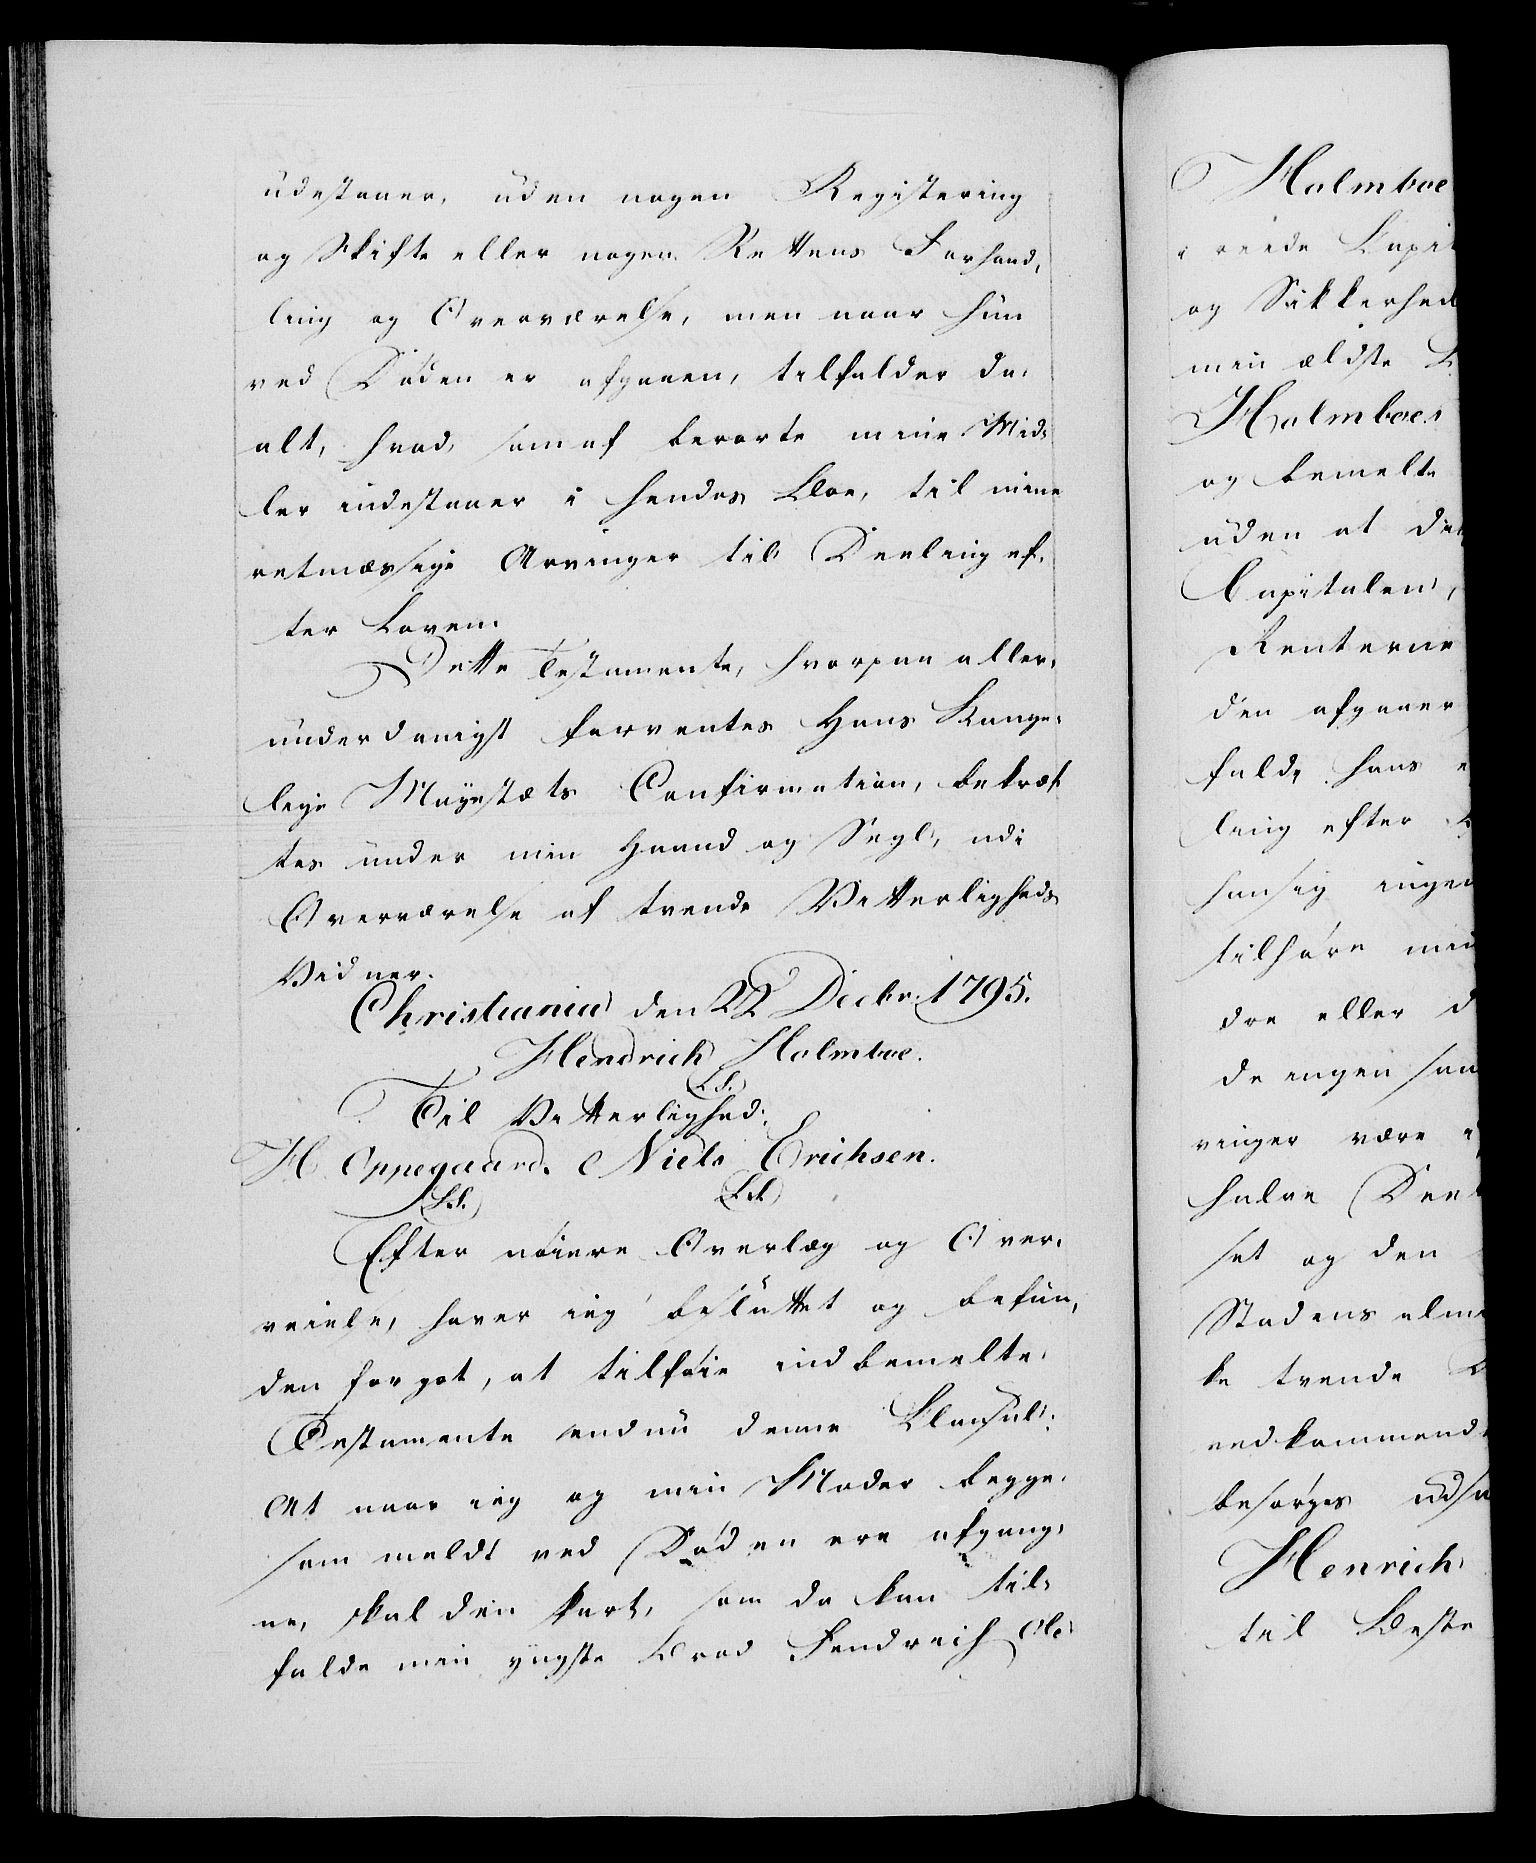 udestaaer, uden nogen Registering
og Skifte eller nogen Rettens Forhand,
ling og Overværelse, men naar hun
ved Døden er afgaaen, tilfalder da,
alt, hvad, som af berørte mine Mid,
ler indestaaer i hendes Boe, til mine
retmæssige Arvinger til Deeling ef,
ter Loven.
Dette Testamente, hvorpaa aller,
underdanigst forventes Hans Konge,
lige Mayestæts Confirmation, bekræf
tes under min Haand og Segl, udi
Overværelse af tvende Vitterligheds
Vidner.
Christiania den 22 Decbr. 1795.
Hendrich Holmboe.
(L.S.)
Til Vitterlighed:
H. Oppegaard. Niels Erichsen.
(L.S.) (L.S.)
Efter nøiere Overlæg og Over,
veielse, haver ieg besluttet og befun,
den for got, at tilføie indbemelte
Testamente endnu denne Clausul:
At naar ieg og min Moder begge,
som meldt ved Døden ere afgang,
ne, skal den Part, som da kan til,
falde min yngste Broder Fendreich Ole
Holmboe
i reede Capit
og Sikkerhed
min ældste B
Holmboes
og bemelte
uden at den
Capitalen,
Renterne
den afgaaer
falde hans
ling efter
han sig ingen
tilhøre min
dre eller d
de ingen saa
vinger være i
halve Dee
set og den
Stadens alm
ke tvende
vedkommende
besørges udsa
Henrich
til Beste